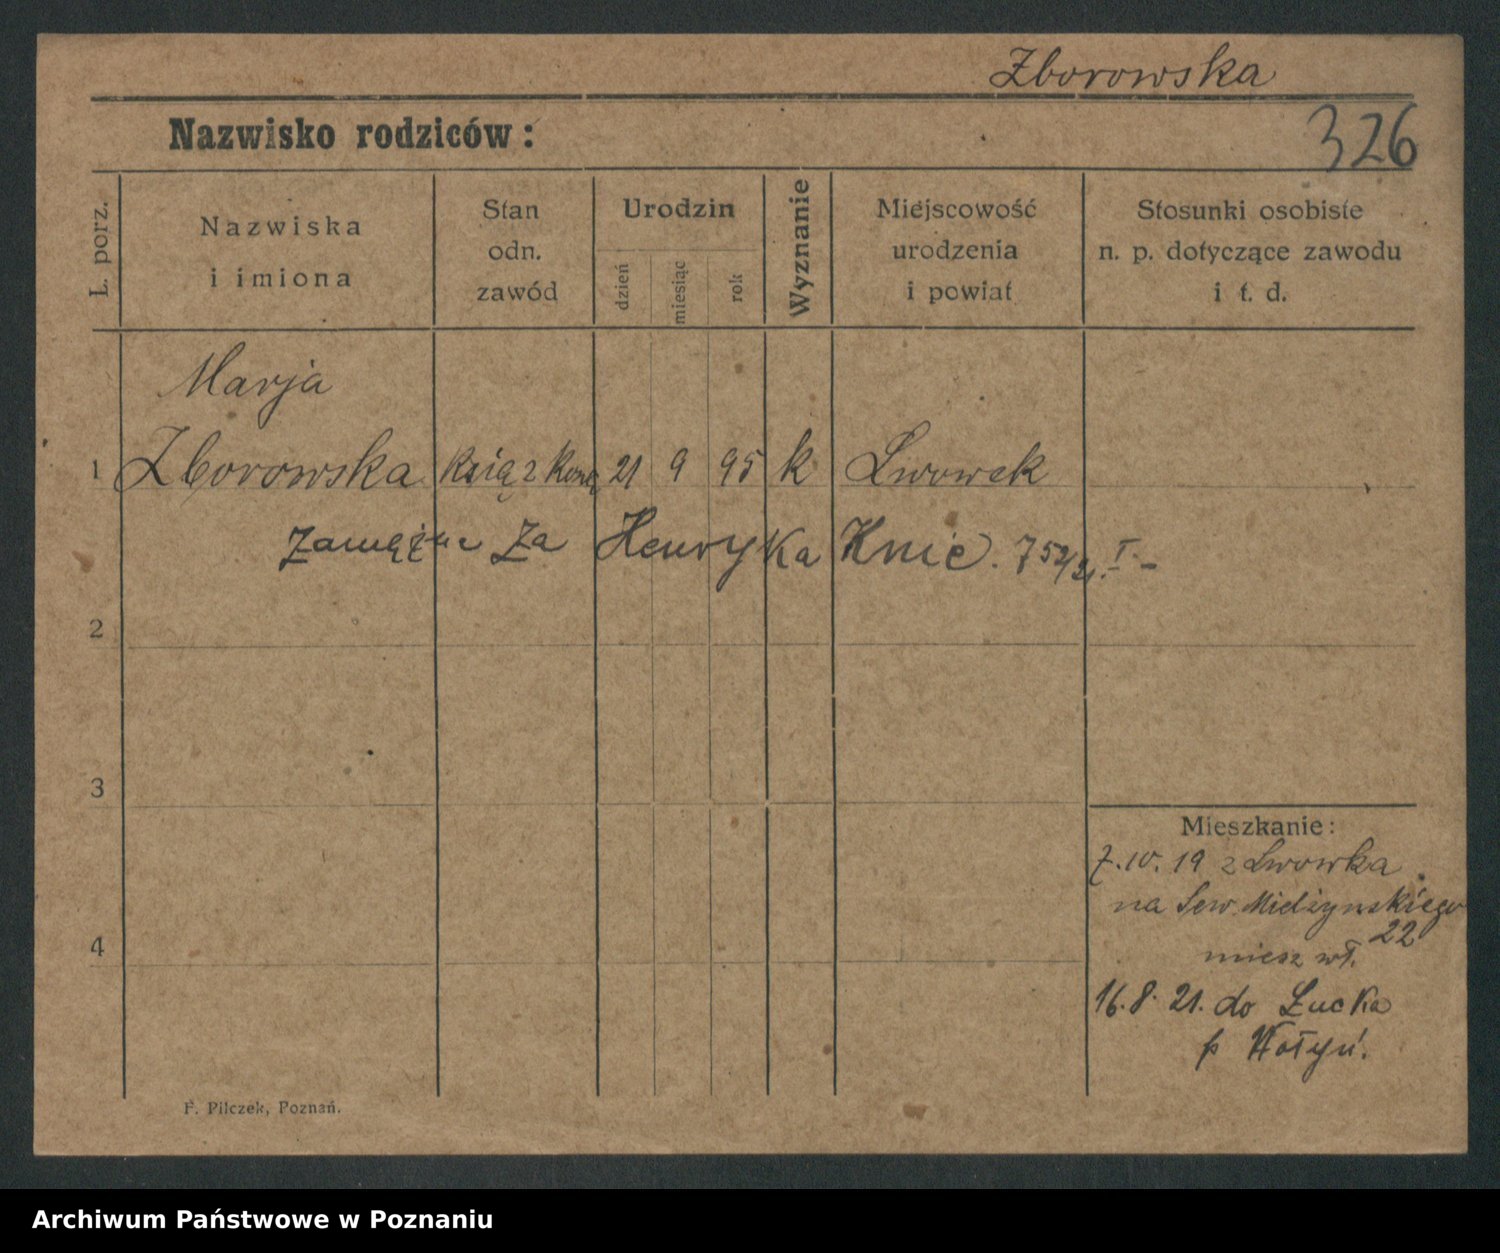 Zborowska
Nazwisko rodziców:
326
L. porz.
Nazwiska
i imiona
Stan
odn.
zawód
Urodzin
dzień
miesiąc
rok
Wyznanie
Miejscowość
urodzenia
i powiat
Stosunki osobiste
n. p. dotyczące zawodu
i t. d.
Marja
1 Zborowska 21 9 95 k Lwowek
zamężna za Henryka Knie. 752/21. I. -
2
3
4
Mieszkanie:
7.10.19 z Lwowka
na Sew. Mielżynskiego
22
miesz wł.
16.8.21. do Łucka
p Wołyń.
F. Pilczek, Poznań.
Archiwum Państwowe w Poznaniu